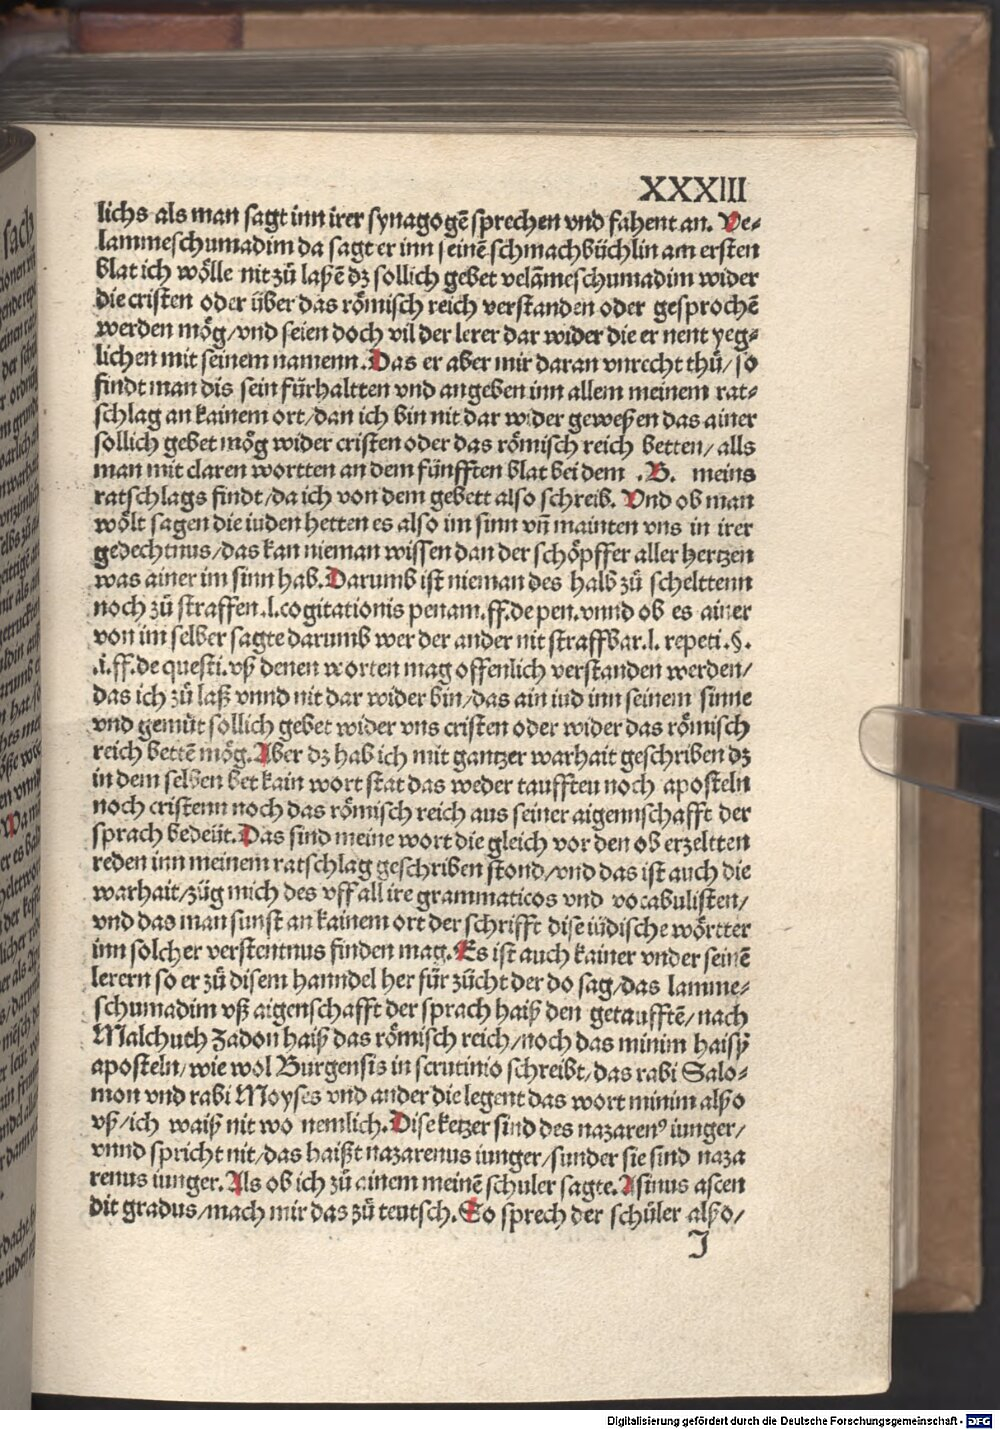 XXXIII
lichs als man sagt inn irer synagogē sprechen vnd fahent an. Ve⸗
lammeschumadim da sagt er inn seinē schmachbüchlin am ersten
blat ich wölle nit zů laßē dz sollich gebet velāmeschumadim wider
die cristen oder über das römisch reich verstanden oder gesprochē
werden mög/vnd seien doch vil der lerer dar wider die er nent yeg⸗
lichen mit seinem namenn. Das er aber mir daran vnrecht thů/so
findt man dis sein fürhaltten vnd angeben inn allem meinem rat⸗
schlag an kainem ort/dan ich bin nit dar wider geweßen das ainer
sollich gebet mög wider cristen oder das römisch reich betten/alls
man mit claren wortten an dem fünfften blat bei dem .B. meins
ratschlags findt/da ich von dem gebett also schreib. Vnd ob man
wölt sagen die iuden hetten es also im sinn vñ mainten vns in irer
gedechtnus/das kan nieman wissen dan der schöpffer aller hertzen
was ainer im sinn hab. Darumb ist nieman des halb zů schelttenn
noch zů straffen.l.cogitationis penam.ff.de pen.vnnd ob es ainer
von im selber sagte darumb wer der ander nit straffbar.l.repeti.§.
.i.ff.de questi.vß denen worten mag offenlich verstanden werden/
das ich zů laß vnnd nit dar wider bin/das ain iud inn seinem sinne
vnd gemüt sollich gebet wider vns cristen oder wider das römisch
reich bettē mög. Aber dz hab ich mit gantzer warhait geschriben dz
in dem selben bet kain wort stat das weder taufften noch aposteln
noch cristenn noch das römisch reich aus seiner aigennschafft der
sprach bedeüt. Das sind meine wort die gleich vor den ob erzeltten
reden inn meinem ratschlag geschriben stond/vnd das ist auch die
warhait/züg mich des vff all ire grammaticos vnd vocabulisten/
vnd das man sunst an kainem ort der schrifft dise iüdische wörtter
inn solcher verstentnus finden mag. Es ist auch kainer vnder seinē
lerern so er zů disem hanndel her für zücht der do sag/das lamme⸗
schumadim vß aigenschafft der sprach haiß den getaufftē/nach
Malchuth Zadon haiß das römisch reich/noch das minim haisß
aposteln/wie wol Burgensis in scrutinio schreibt/das rabi Salo⸗
mon vnd rabi Moyses vnd ander die legent das wort minim alßo
vß/ich waiß nit wo nemlich. Dise ketzer sind des nazarenꝰ iunger/
vnnd spricht nit/das haißt nazarenus iunger/sunder sie sind naza
renus iunger. Als ob ich zů ainem meinē schuler sagte. Asinus ascen
dit gradus/mach mir das zů teutsch. So sprech der schüler alßo/
J
Digitalisierung gefördert durch die Deutsche Forschungsgemeinschaft - DFG